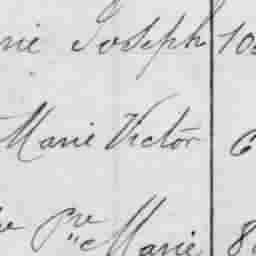 Joseph 10
Marie Victor 6
Pre Marie 8